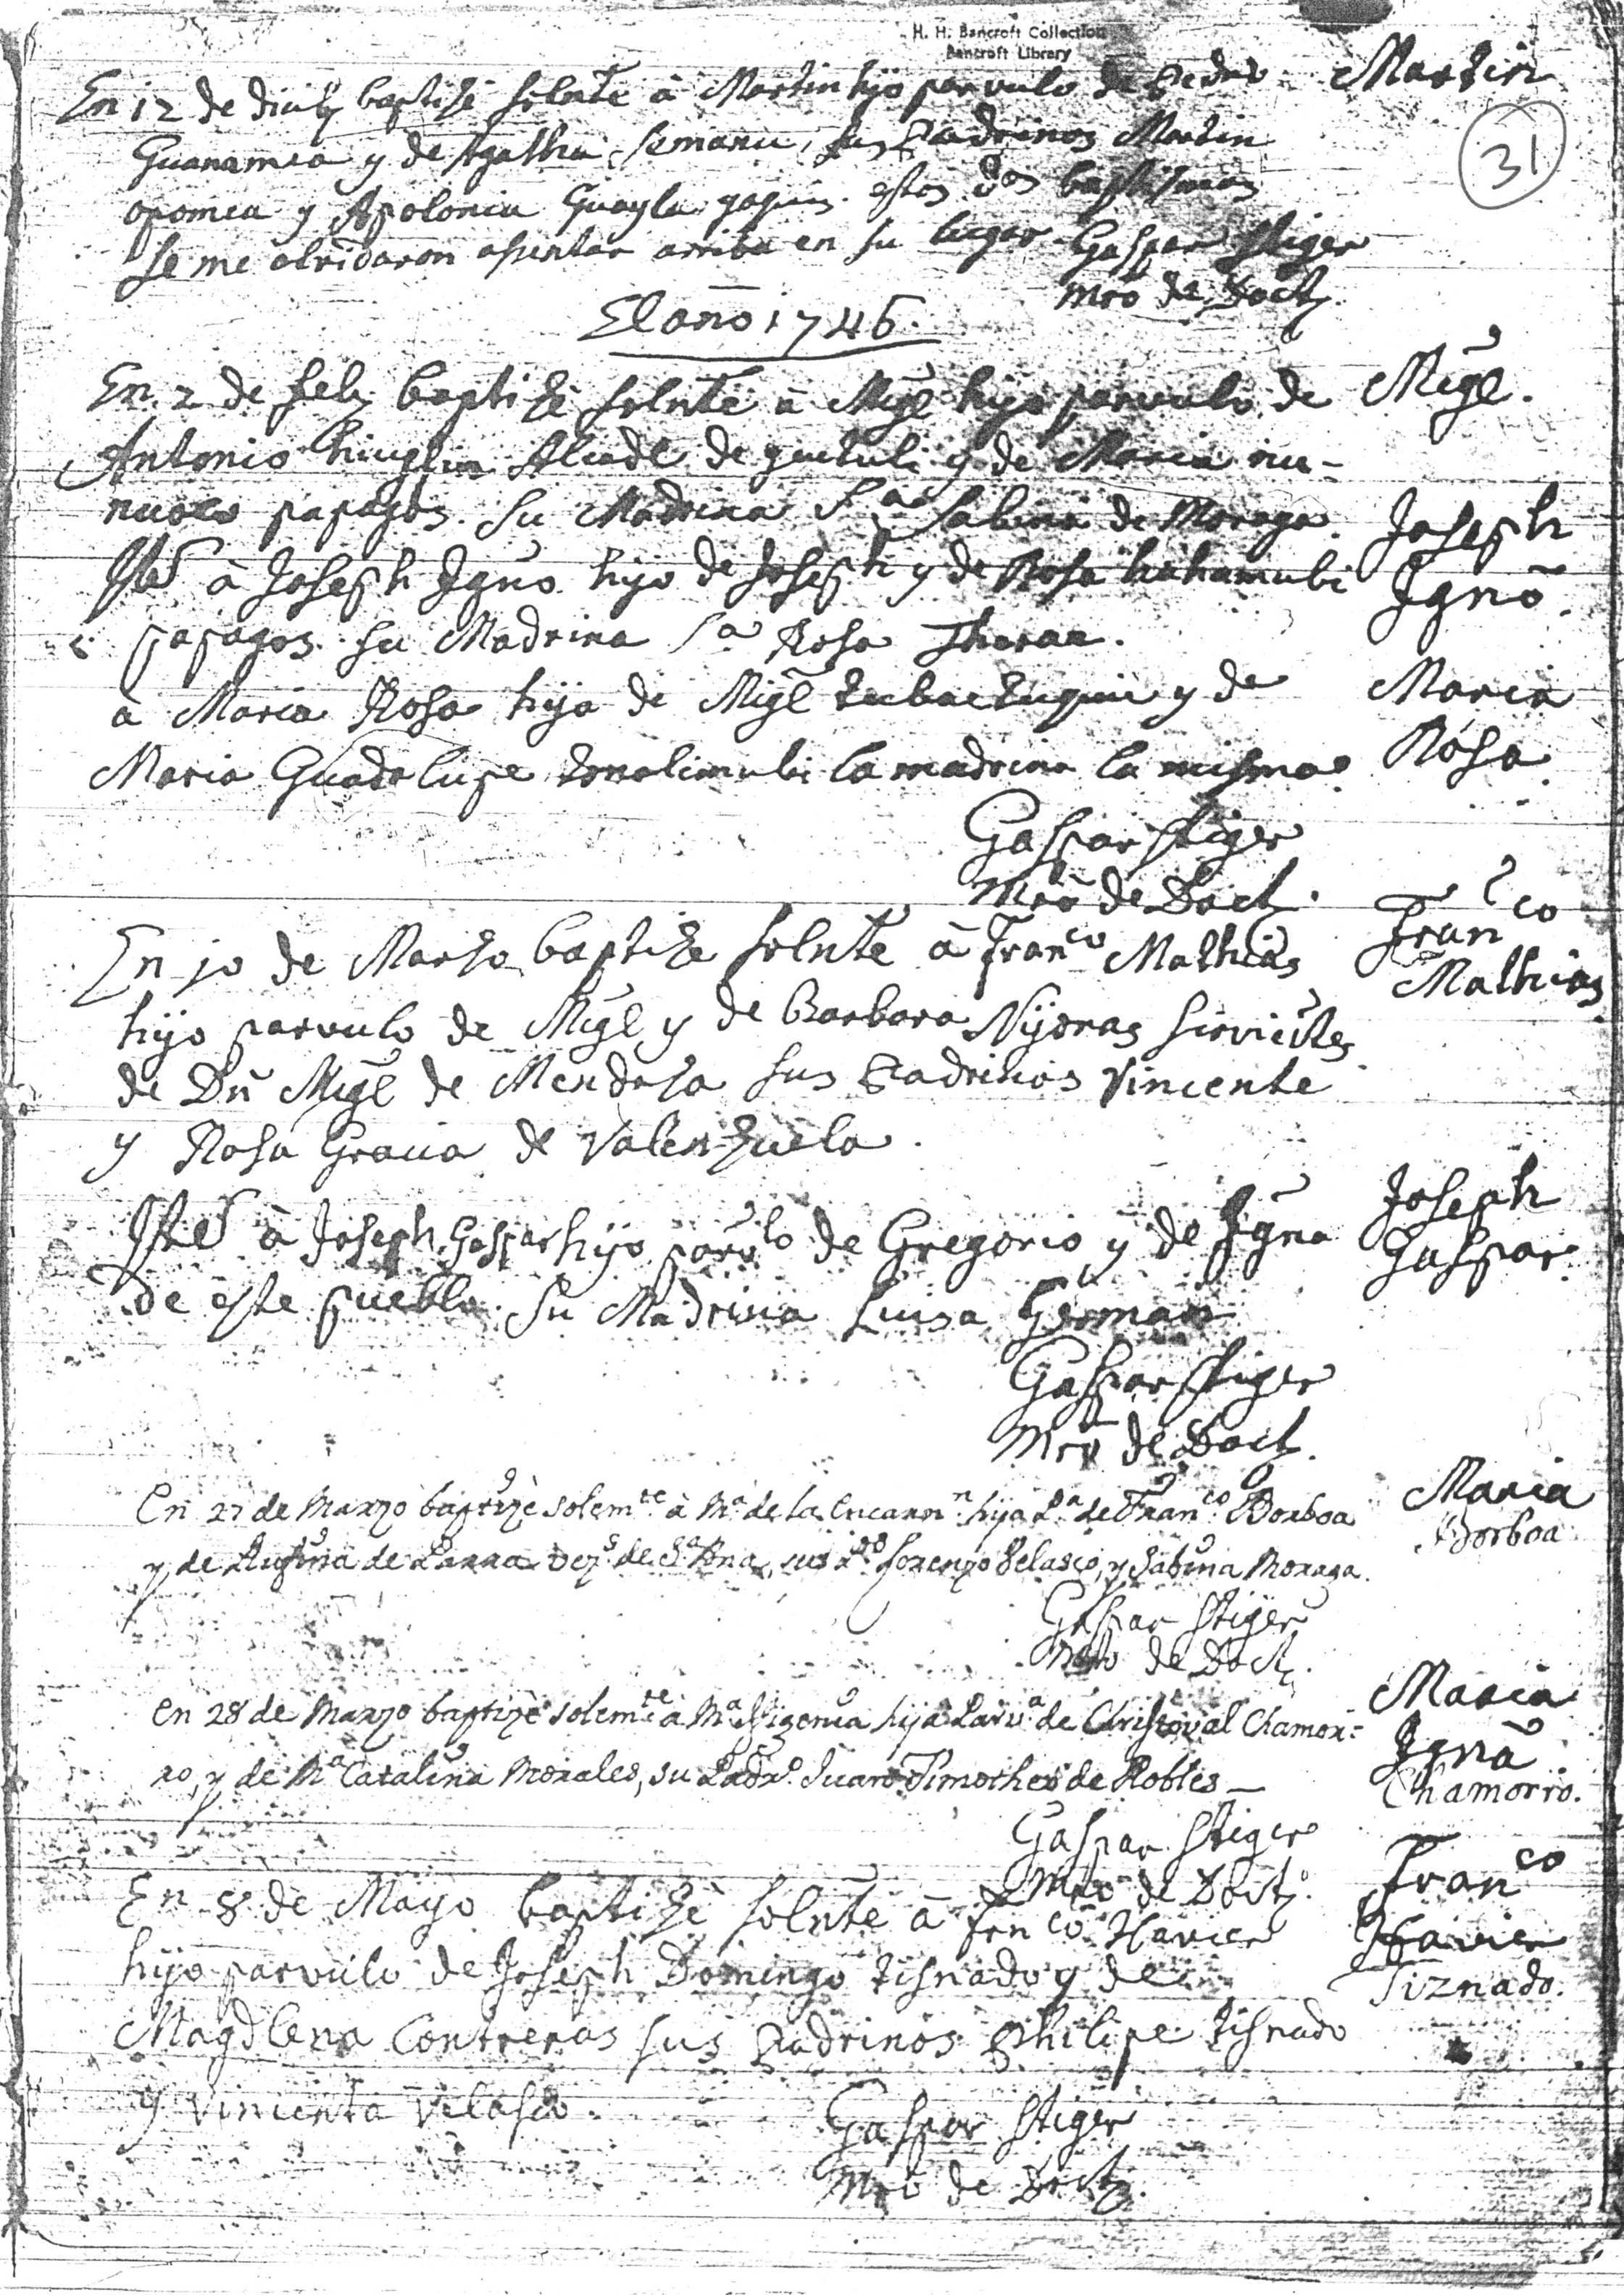 H. H. Bancroft Collection
Bancroft Library
31
Martin
En 12 de dicib baptisè solnte à Martin hijo parvulo de Pedro
Guanamea y de Agatha semanu, sus Padrinos Martin
opomea y Apolonia Guayla papin. estos dos baptismos
se me olvidaron asentar arriba en su lugar Gaspar Stiger
Mro de Doct.
El año 1746.
Migl.
En 2 de feb baptizè solnte à Migl hijo parvulo de
Antonio Alcade de y de Maria nu-
papagos. Su Madrina Sa Sabina de Moraga.
Joseph
Ignõ.
Iter à Joseph Igno hijo de Joseph y de Rosa huhamubi
papagos. su Madrina Sa Rosa
Maria
Rosa.
à Maria Rosa hija de Migl tubactuquii y de
Maria Guadalupe tonolimubi la madrina la misma
Gaspar Stiger
Mro de Doct.
Franco
Mathias
En 10 de Marzo baptize solnte à Franco Mathias
hijo parvulo de Migl y de Barbara Nijoras sirvietes
de Dn Migl de Mendosa sus Padrinos Vincente
y Rosa Gracia de Valenzuela.
Joseph
Gaspar
Iter à Joseph Gaspar hijo parvlo de Gregorio y de Igna
de este pueblo. Su Madrina Luisa German
Gaspar Stiger
Mro de Doct.
Maria
Borboa
En 27 de Marzo baptizè solemte à Ma de la Encarnn hija Pa de Franco Borboa
y de de Parra Vezs de Sta Ana, sus Pdos Lorenzo Velasco, y Sabina Moraga.
Gaspar Stiger
Mro de Doct.
Maria
Igña
Chamorro.
En 28 de Marzo baptizè solemte à Ma Ifigenia hija Parva de Christoval Chamor-
ro, y de Ma Catalina Morales, su Padro Juan Timotheo de Robles
Gaspar Stiger
Mro de Doct.
Franco
Xavier
Tiznado.
En 8 de Mayo baptizè solnte à Franco Xavier
hijo parvulo de Joseph Domingo tisnado y de
Magdlena Contreras sus Padrinos Philipe tisnado
y Vincenta Velasco.
Gaspar Stiger
Mro de Doct.